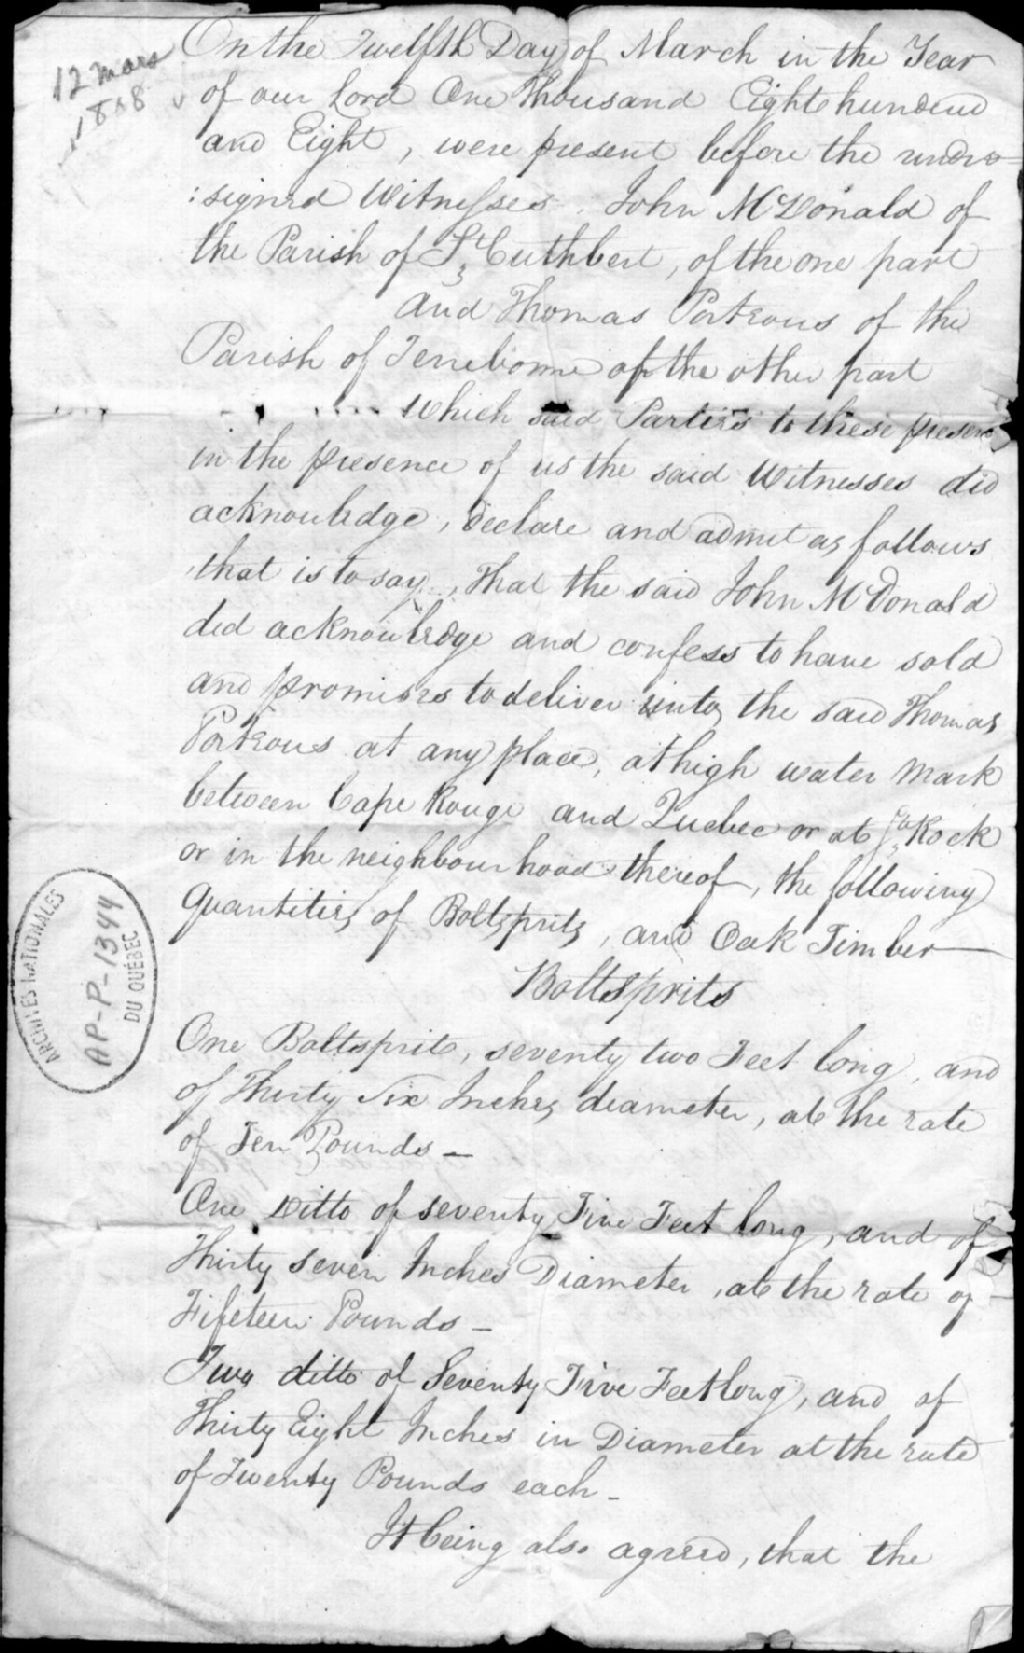 12 mars
1808
On the Twelfth Day of March in the Year
of our Lord One Thousand Eight hundred
and Eight, were present before the under=
:signed Witnesses John McDonald of
the Parish of St Cuthbert, of the one part
and Thomas Porteous of the
Parish of Terrebonne of the other part
which said Parties to these presen
in the presence of us the said Witnesses did
acknowledge, declare and admit as follows
that is to say, that the said John McDonald
did acknowledge and confess to have sold
and promises to deliver unto the said Thomas
Porteous at any place, at high water mark
between Cape Rouge and Quebec or at Rock
or in the neighbourhood thereof, the following
Quantities of Boltsprits, and Oak Timber
Boltsprits
One Boltsprit, seventy two Feet long, and
of Thirty Six Inches diameter, at the rate
of Ten Pounds —
One Ditto of seventy Five Feet long, and of
Thirty seven Inches Diameter, at the rate of
Fifeteen Pounds —
Two ditto of Seventy Five Feet long, and of
Thirty Eight Inches in Diameter at the rate
of Twenty Pounds each —
It being also agreed, that the
ARCHIVES NATIONALES
AP-P-1344
DU QUÉBEC